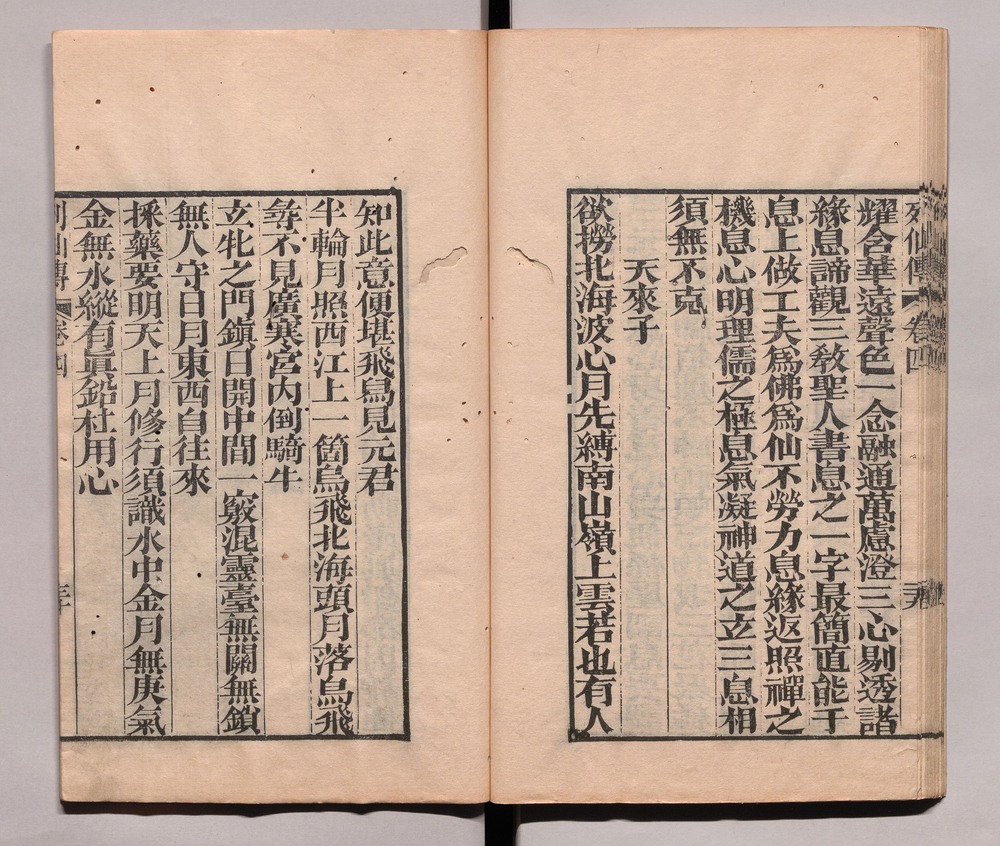 列仙傳 卷四
耀含華遠聲色一念融通萬慮澄三心剔透諸
緣息諦觀三敎聖人書息之一字最簡直能于
息上做工夫爲佛爲仙不勞力息緣返照禪之
機息心明理儒之極息氣凝神道之玄三息相
須無不克
天來子
欲撈北海波心月先縛南山嶺上雲若也有人
知此意便堪飛舃見元君
半輪月照西江上一箇烏飛北海頭月落烏飛
尋不見廣寒宮內倒騎牛
玄牝之門鎮日開中間一竅混靈臺無關無鎖
無人守日月東西自往來
採藥要明天上月修行須識水中金月無庚氣
金無水縱有眞鉛枉用心
列仙傳 卷四
三十